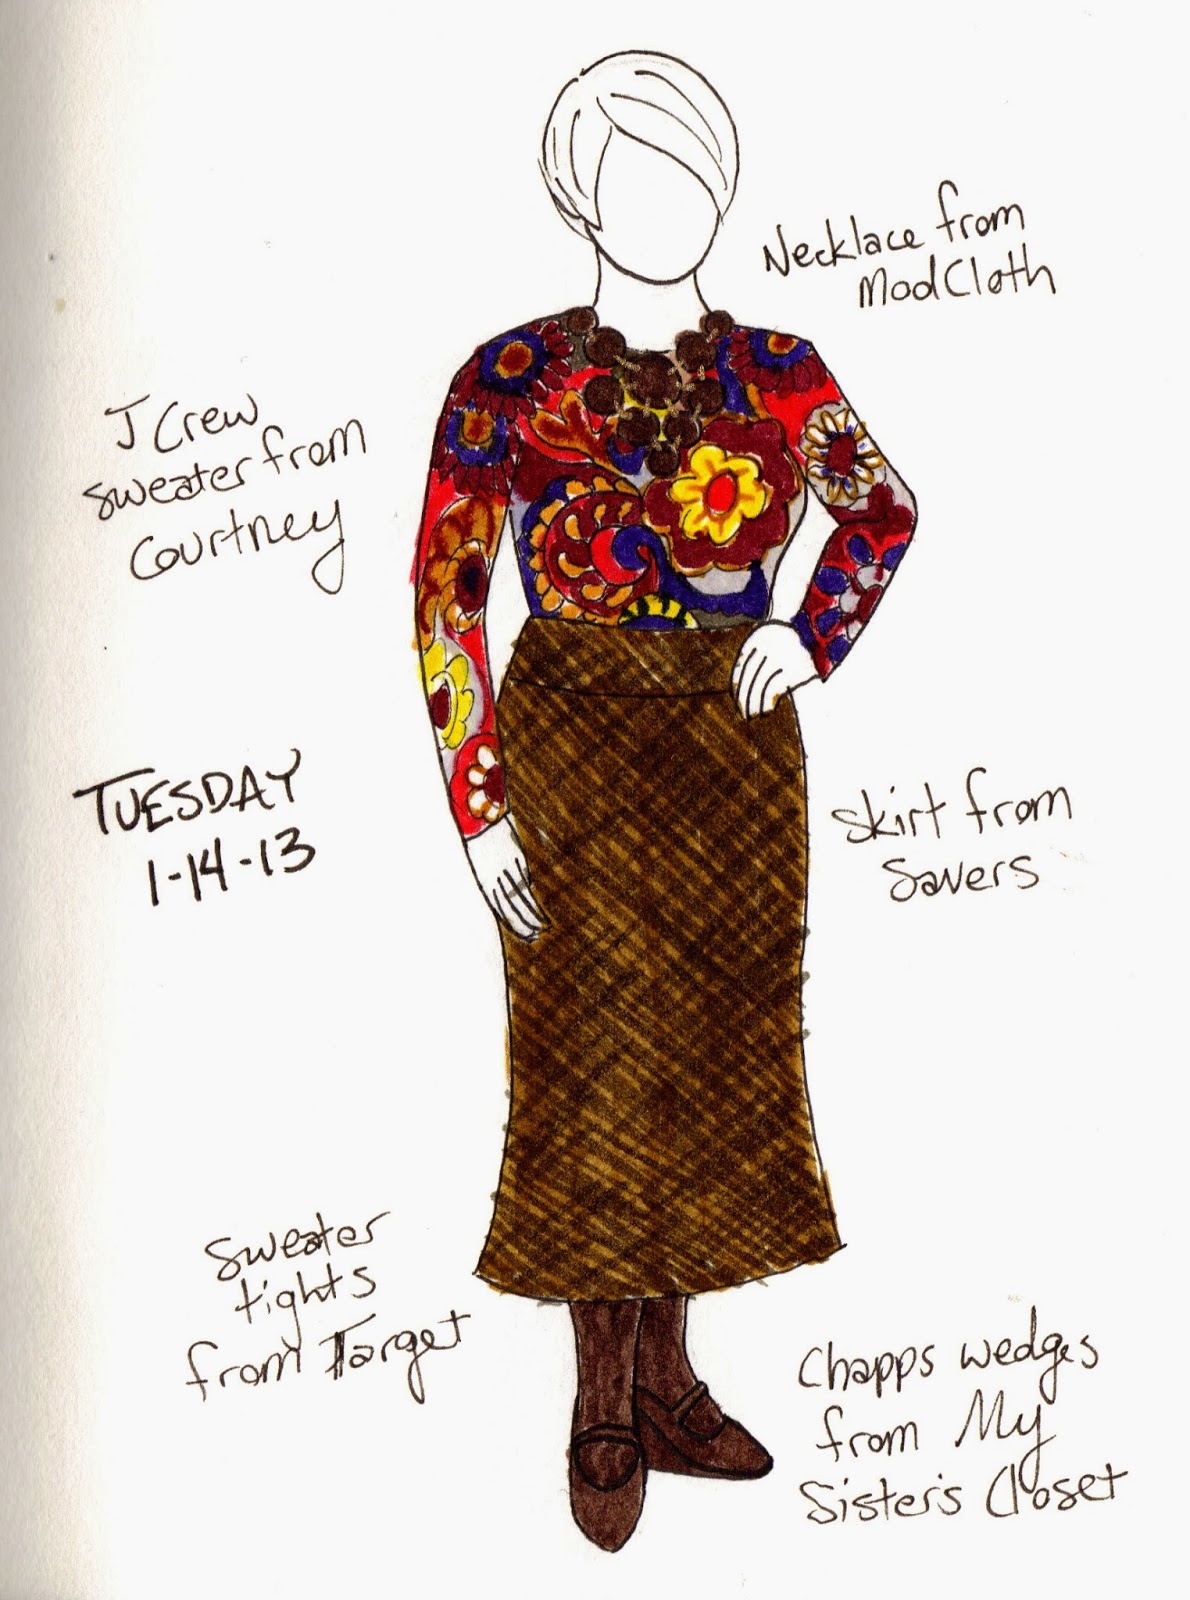 Necklace from
ModCloth
J Crew
sweater from
Courtney
TUESDAY
1-14-13
skirt from
Savers
Sweater
tights
from Target
Chapps wedges
from My
Sister's Closet